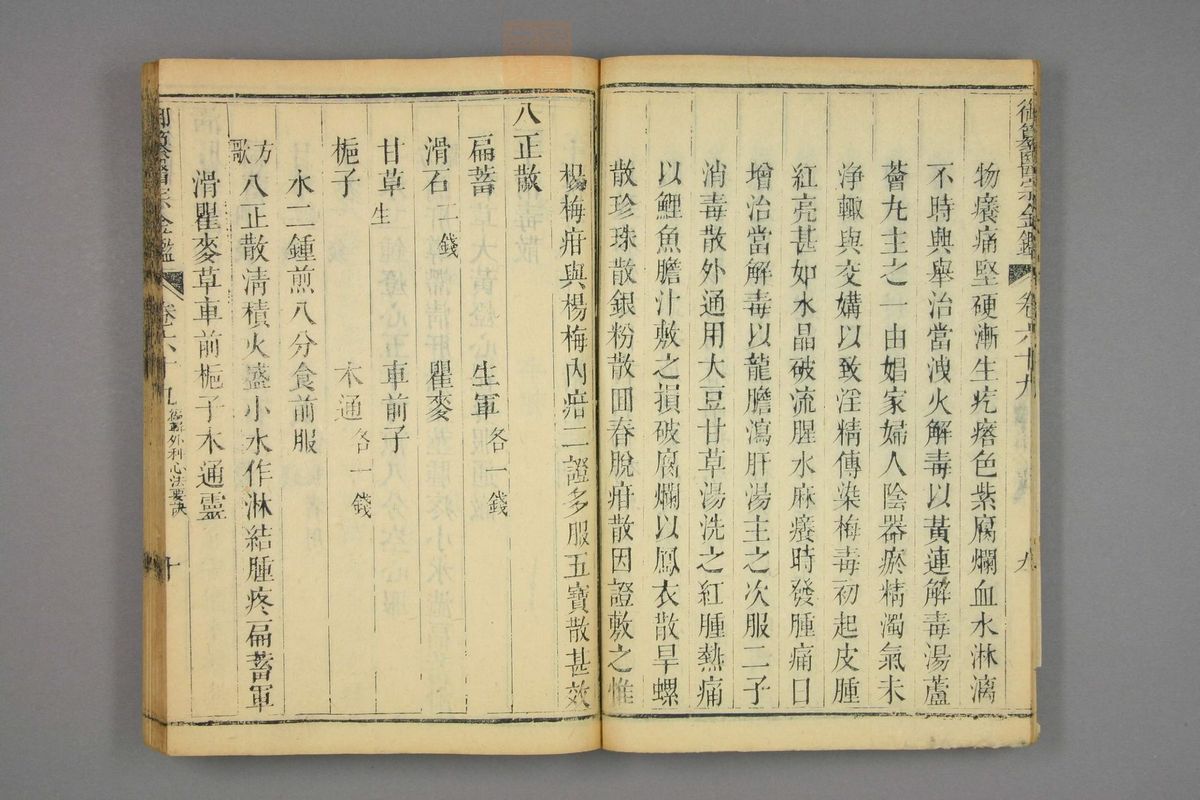 御纂醫宗金鑑 卷六十九 九
物癢痛堅硬漸生疙瘩色紫腐爛血水淋漓
不時興舉治當洩火解毒以黃連解毒湯蘆
薈九主之一由娼家婦人陰器瘀精濁氣未
淨輙與交媾以致淫精傳染梅毒初起皮腫
紅亮甚如水晶破流腥水麻癢時發腫痛日
增治當解毒以龍膽瀉肝湯主之次服二子
消毒散外通用大豆甘草湯洗之紅腫熱痛
以鯉魚膽汁敷之損破腐爛以鳳衣散旱螺
散珍珠散銀粉散回春脫疳散因證敷之惟
楊梅疳與楊梅內疳二證多服五寶散甚效
八正散
萹蓄 生軍各一錢
滑石二錢 瞿麥
甘草生 車前子
梔子 木通各一錢
水二鍾煎八分食前服
方歌 八正散清積火盛小水作淋結腫疼萹蓄軍
滑瞿麥草車前梔子木通靈
御纂醫宗金鑑 卷六十九 編輯外科心法要訣 十